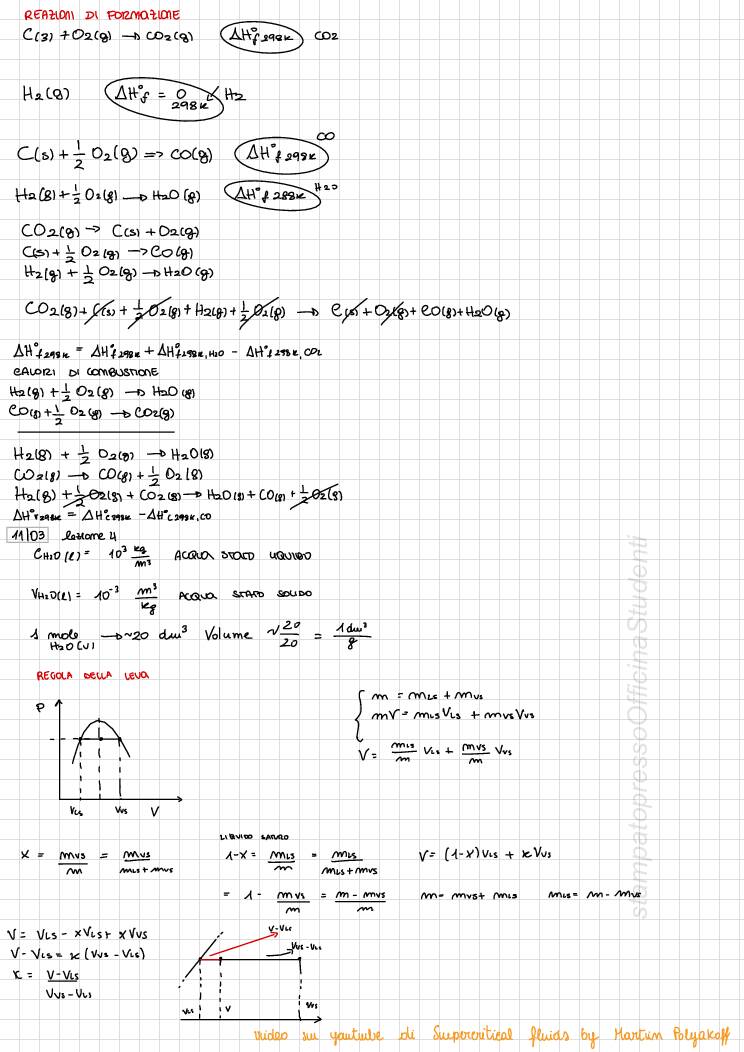 REAZIONI DI FORMAZIONE
C(s) + O2(g) → CO2(g) ΔH°f 298K CO2
H2(g) ΔH°f = 0 298K H2
C(s) + 1/2 O2(g) => CO(g) ΔH°f 298K CO
H2(g) + 1/2 O2(g) → H2O(g) ΔH°f 288K H2O
CO2(g) → C(s) + O2(g)
C(s) + 1/2 O2(g) → CO(g)
H2(g) + 1/2 O2(g) → H2O(g)
CO2(g) + C(s) + 1/2 O2(g) + H2(g) + 1/2 O2(g) → C(s) + O2(g) + CO(g) + H2O(g)
ΔH°f 298K = ΔH°f 298K + ΔH°f 298K, H2O - ΔH°f 298K, CO2
CALORI DI COMBUSTIONE
H2(g) + 1/2 O2(g) → H2O(g)
CO(g) + 1/2 O2(g) → CO2(g)
H2(g) + 1/2 O2(g) → H2O(g)
CO2(g) → CO(g) + 1/2 O2(g)
H2(g) + 1/2 O2(g) + CO2(g) → H2O(g) + CO(g) + 1/2 O2(g)
ΔH°r 298K = ΔH°C 298K - ΔH°C 298K, CO
11/03 lezione 4
CH2O(l) = 10³ kg/m³ ACQUA STATO LIQUIDO
VH2O(l) = 10⁻³ m³/kg ACQUA STATO SOLIDO
1 mole H2O(V) → ~20 dm³ Volume ~20/20 = 1 dm³/g
REGOLA DELLA LEVA
P
VLS VVS V
m = mLS + mVS
mV = mLS VLS + mVS VVS
V = mLS/m VLS + mVS/m VVS
LIQUIDO SATURO
x = mVS/m = mVS/(mLS + mVS) 1-x = mLS/m = mLS/(mLS + mVS) V = (1-x) VLS + x VVS
= 1 - mVS/m = (m - mVS)/m m = mVS + mLS mLS = m - mVS
V = VLS - xVLS + xVVS
V - VLS = x (VVS - VLS)
x = (V - VLS)/(VVS - VLS)
V-VLS
VVS-VLS
VLS V VVS
video su youtube di Supercritical fluids by Martin Polyakoff
stampatopressoOfficinaStudenti